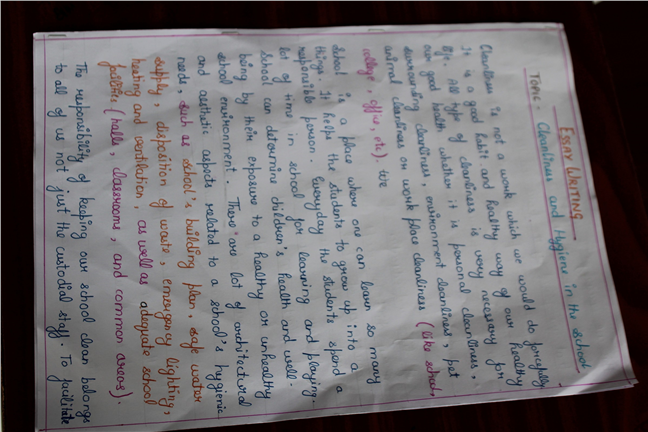 ESSAY WRITING
TOPIC - Cleanliness and Hygiene in the School
Cleanliness is not a work which we would do forcefully.
It is a good habit and healthy way of our healthy
life. All type of cleanliness is very necessary for
our good health whether it is personal cleanliness,
surrounding cleanliness, environment cleanliness, pet
animal cleanliness or work place cleanliness (like school,
college, office, etc). We
School is a place where one can learn so many
things. It helps the students to grow up into a
responsible person. Everyday the students spend a
lot of time in school for learning and playing.
School can determine children's health and well-
being by their exposure to a healthy or unhealthy
school environment. There are lot of architectural
and aesthetic aspects related to a school's hygienic
needs, such as school's building plan, safe water
supply, disposition of waste, emergency lighting,
heating and ventilation, as well as adequate school
facilities (halls, classrooms, and common areas).
The responsibility of keeping our school clean belongs
to all of us not just the custodial staff. To facilitate